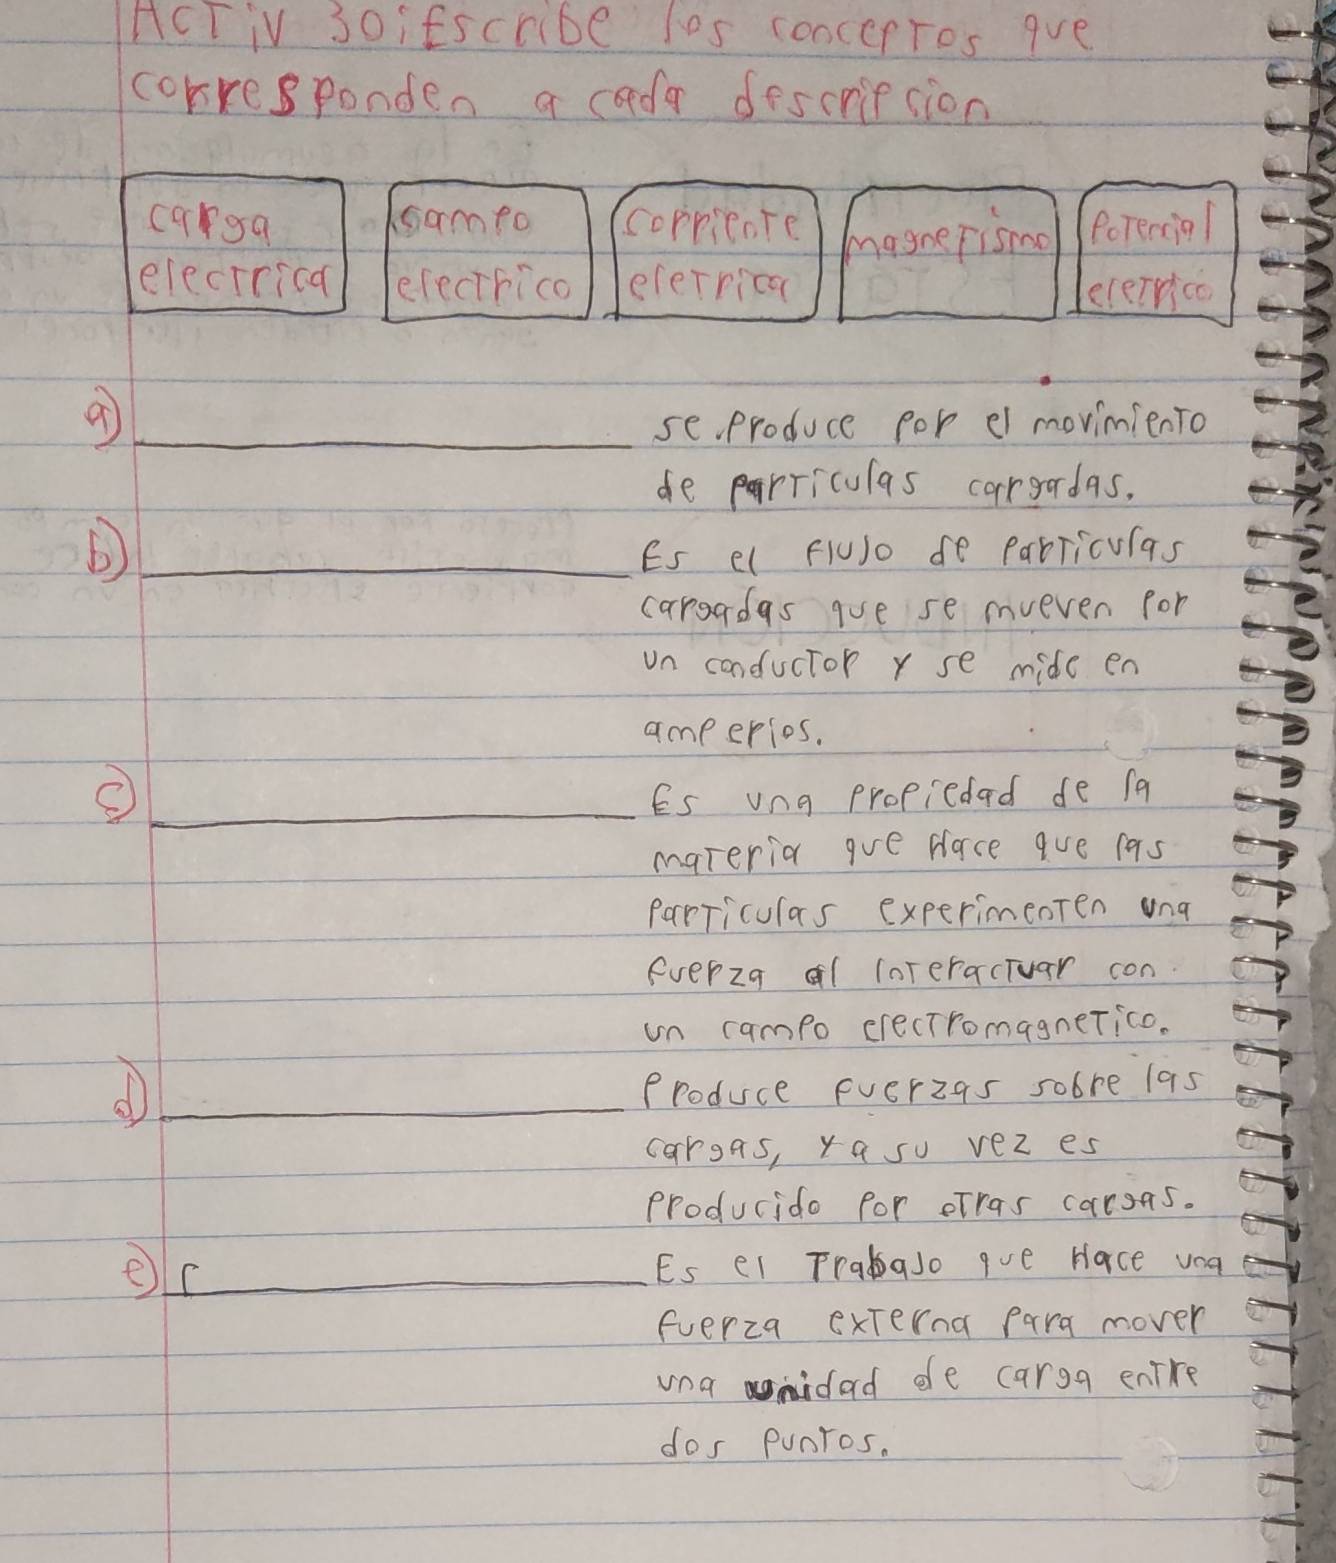 Activ 30: Escribe los conceptos que
corresponden a cada descripcion
carga
electrica
campo
electrico
corriente
eletrica
magnetismo
Potencial
eletrico
a) se produce por el movimiento
de particulas cargadas.
b) Es el flujo de particulas
cargadas que se mueven por
un conductor y se mide en
amperios.
c) Es una propiedad de la
materia que Hace que las
particulas experimenten una
fuerza al interactuar con
un campo electromagnetico.
d) Produce fuerzas sobre las
cargas, y a su vez es
producido por otras cargas.
e) Es el Trabajo que Hace una
fuerza externa para mover
una unidad de carga entre
dos puntos.